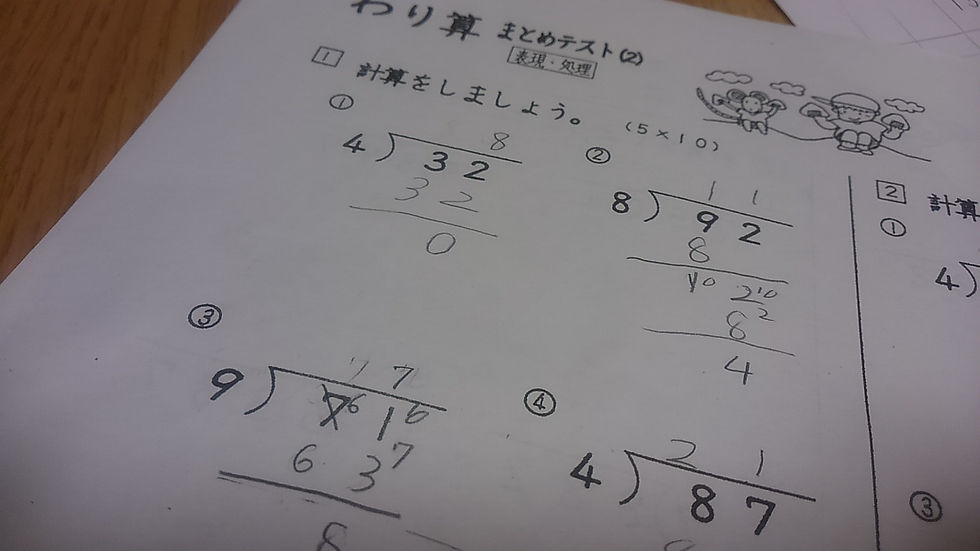 わり算 まとめテスト(2)
表現・処理
1 計算をしましょう。 (5×10)
①
8
4)32
32
0
②
11
8)92
8
10 2 10
8 2
4
③
7
9)7 6 1
6 3 7
8
④
21
4)87
2 計算
①
4)
③